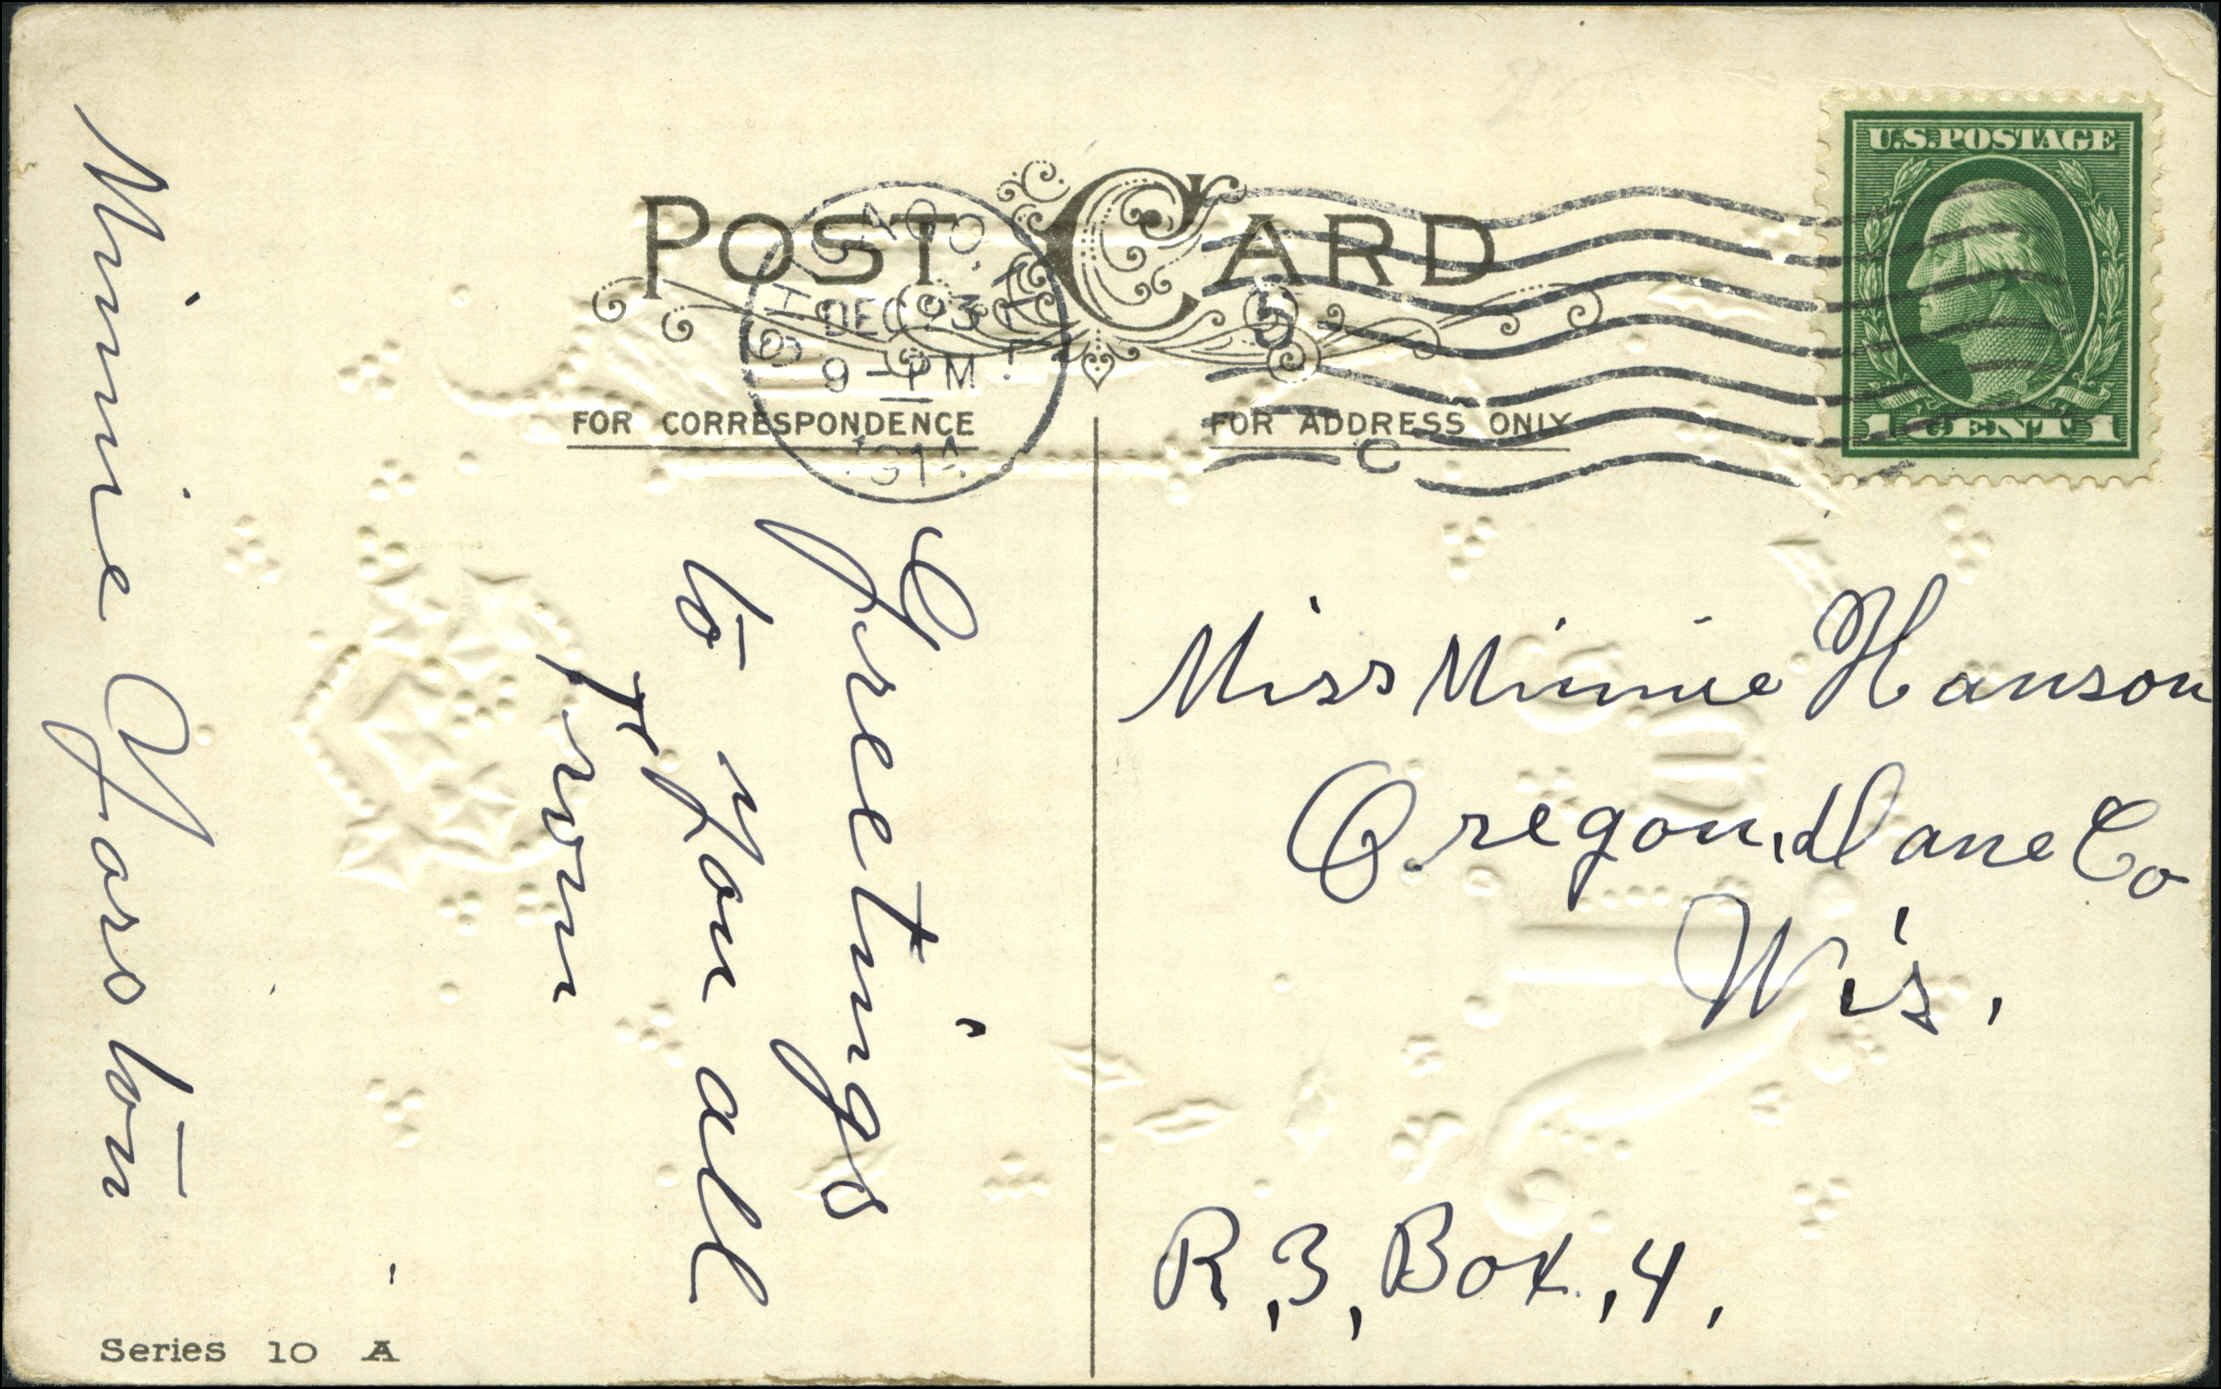 POST CARD
CHICAGO, ILL.
DEC 23
9 - PM
1914
5
C
U.S. POSTAGE
1 CENT 1
FOR CORRESPONDENCE
FOR ADDRESS ONLY
Greetings
to you all
from
Minnie Yorston
Miss Minnie Hanson
Oregon, Dane Co
Wis.
R, 3, Box, 4,
Series 10 A